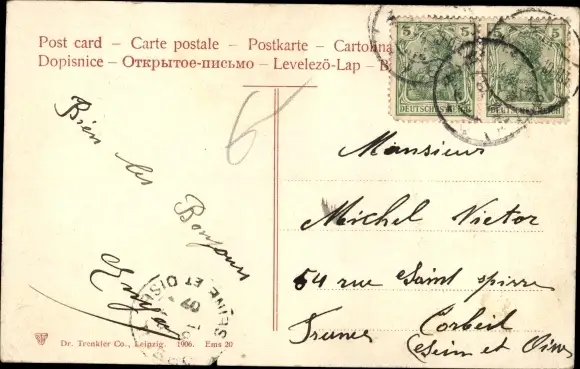 Post card – Carte postale – Postkarte – Cartolina
Dopisnice – Открытое-письмо – Levelezö-Lap – B
5 5
DEUTSCHES REICH
5 5
DEUTSCHES REICH
6
Bien les Bonjours
Monsieur
Michel Victor
54 rue Saint spirre
Corbeil
Seine et Oise
SEINE ET OISE
07
Dr. Trenkler Co., Leipzig. 1906. Ems 20